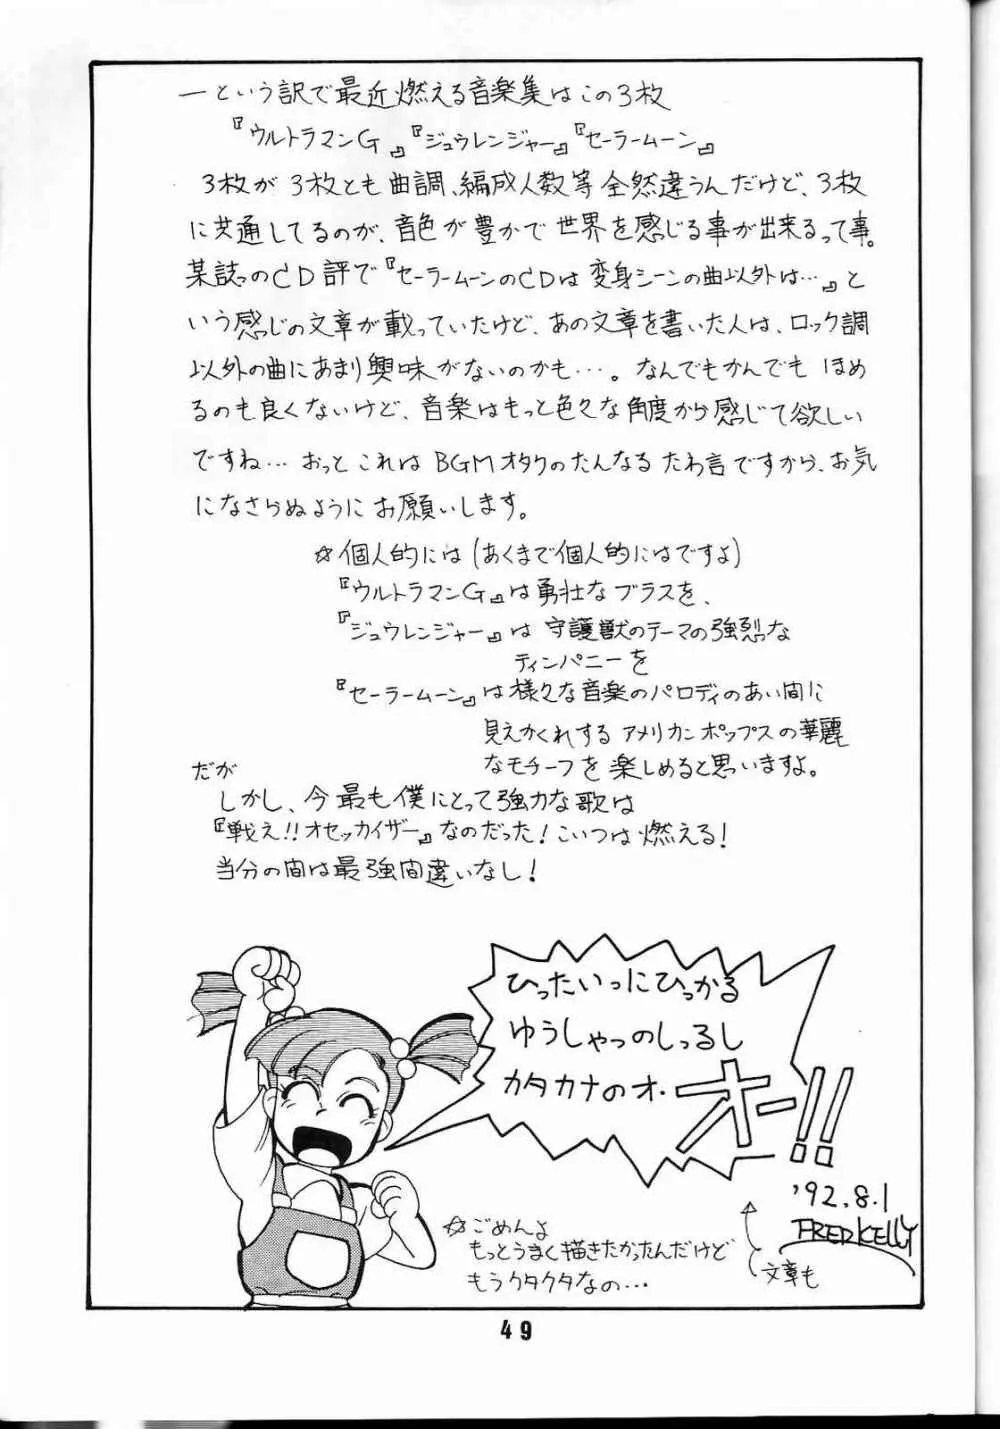 ―という訳で最近燃える音楽集はこの3枚
『ウルトラマンG』『ジュウレンジャー』『セーラームーン』
3枚が3枚とも曲調、編成人数等全然違うんだけど、3枚
に共通してるのが、音色が豊かで世界を感じる事が出来るって事。
某誌のCD評で『セーラームーンのCDは変身シーンの曲以外は…』と
いう感じの文章が載っていたけど、あの文章を書いた人は、ロック調
以外の曲にあまり興味がないのかも…。なんでもかんでもほめ
るのも良くないけど、音楽はもっと色々な角度から感じて欲しい
ですね…おっとこれはBGMオタクのたんなるたわ言ですから、お気
になさらぬようにお願いします。
☆個人的には(あくまで個人的にはですよ)
『ウルトラマンG』は勇壮なブラスを、
『ジュウレンジャー』は守護獣のテーマの強烈な
ティンパニーを
『セーラームーン』は様々な音楽のパロディのあい間に
見えかくれするアメリカンポップスの華麗
なモチーフを楽しめると思いますよ。
だが
しかし、今最も僕にとって強力な歌は
『戦え!!オセッカイザー』なのだった!こいつは燃える!
当分の間は最強間違いなし!
ひったいっにひっかる
ゆうしゃっのしっるし
カタカナのオ・オー!!
'92.8.1
FRED KELLY
☆ごめんよ
もっとうまく描きたかったんだけど
もうクタクタなの…
文章も
49